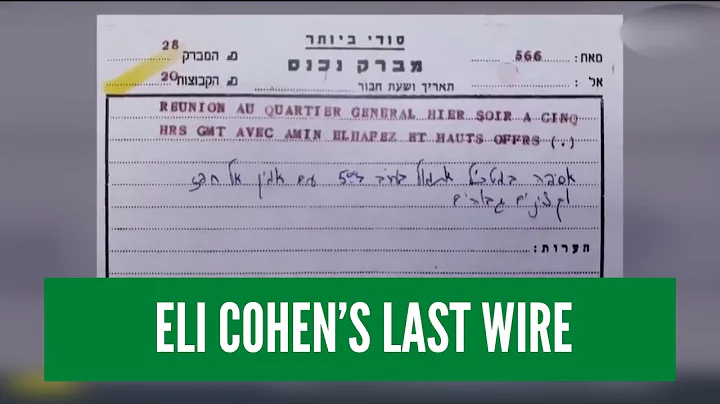 סודי ביותר
מברק נכנס
מס המברק 28
מס הקבוצות 20
תאריך ושעת חבור
מאת: 566
אל:
REUNION AU QUARTIER GENERAL HIER SOIR A CINQ
HRS GMT AVEC AMIN ELHAFEZ ET HAUTS OFFRS (.)
אסיפה במטכ"ל אתמול בערב ב 5 עם אמין אל חפז
וקצינים גבוהים
הערות:
ELI COHEN'S LAST WIRE